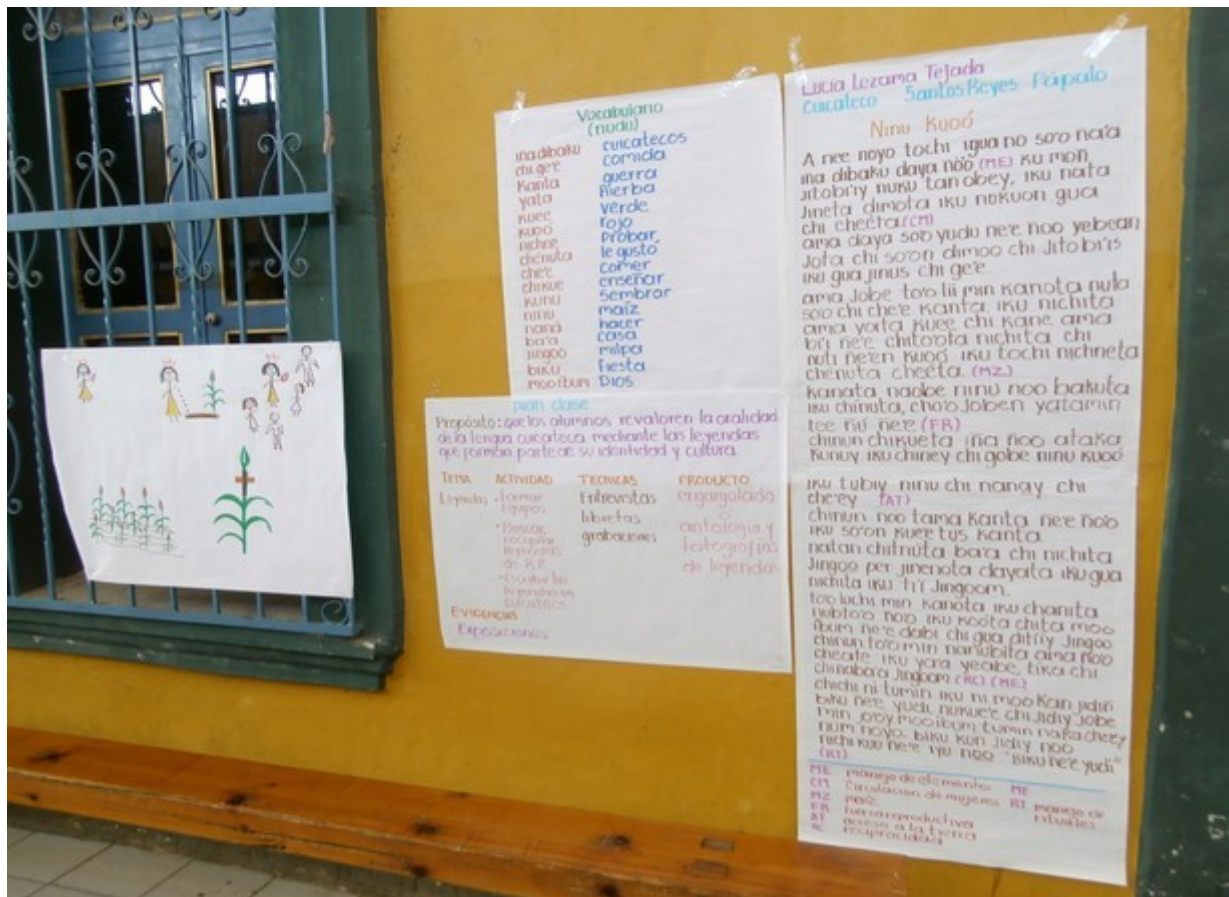 Vocabulario
(nudu)
iña dibaku cuicatecos
chi ge'e comida
Kanta guerra
yata hierba
kuee verde
kuoó rojo
nichne probar,
chenuta le gusto
che'e comer
chikue enseñar
kunu sembrar
ninu maíz
naná hacer
ba'a casa
Jingoo milpa
biku fiesta
moo ibum Dios
plan clase
Propósito: que los alumnos revaloren la oralidad
de la lengua cuicateca mediante las leyendas
que forman parte de su identidad y cultura
TEMA ACTIVIDAD TECNICAS PRODUCTO
Leyendas - Formar Entrevistas engargolado
Equipos libretas o
• Buscar, grabaciones antología y
recopilar fotografías
leyendas de leyendas
de R.P.
• Escribir las
leyendas en
cuicateco
EVIDENCIAS
Exposiciones
Lucía Lezama Tejada
Cuicateco Santos Reyes Pápalo
Ninu Kuoó
A nee noyo tochi igua no so'o na'a
ina dibaku daya no'o (ME) ku mon
Jitobi'iy nuku tan obey, iku nata
Jineta dimota iku nukuon gua
chi cheeta (CM)
ama daya soo yudu ne'e ñoo yebean
Jota chi so'on dimoo chi Jitobi'is
iku gua jinus chi ge'e
ama Jobe to'o lii min kanota nuta
so'o chi che'e kanta, iku nichita
ama yata kuee chi kane ama
bi'i ne'e chitoota nichita chi
nuti ne'en kuoó iku tochi nichneta
chenuta cheeta. (MZ)
kanata naobe ninu noo bakuta
iku chinuta, cho'o Joben yatamin
tee nu ne'e (FR)
chinun chikueta iña ñoo ataka
kunuy iku chiney chi gobe ninu kuoó
iku tubiy ninu chi nangy chi
che'ey (AT)
chinun noo tama kanta ne'e ño'o
iku so'on kuee tus kanta
natan chitnuta ba'a chi nichita
Jingoo per jinenota dayata iku gua
nichita iku ti'i Jingoom.
to'o luchi min kanota iku chanita
nubto'o no'o iku koota chita moo
ibum ne'e dabi chi gua ditiiy Jingoo
chinun to'o min nanubita ama ño'o
cheate iku yana yeabe, tika chi
chinaba'a Jingoom (RC) (ME)
chichi ni tumin iku ni moo kan jidiñ
biku ne'e yudi, nukue'e chi Jidiy Jobe
min joby moo ibum tumin naka cheey
num noyo. biku kun Jidiy noo
nichi kuu ne'e iyu noo "Biku ne'e yudi"
(RI)
ME manejo de elementos ME
CM Circulacion de mujeres RI manejo de
MZ maíz rituales
FR fuerza reproductiva
AT acceso a la tierra
RC reciprocidad